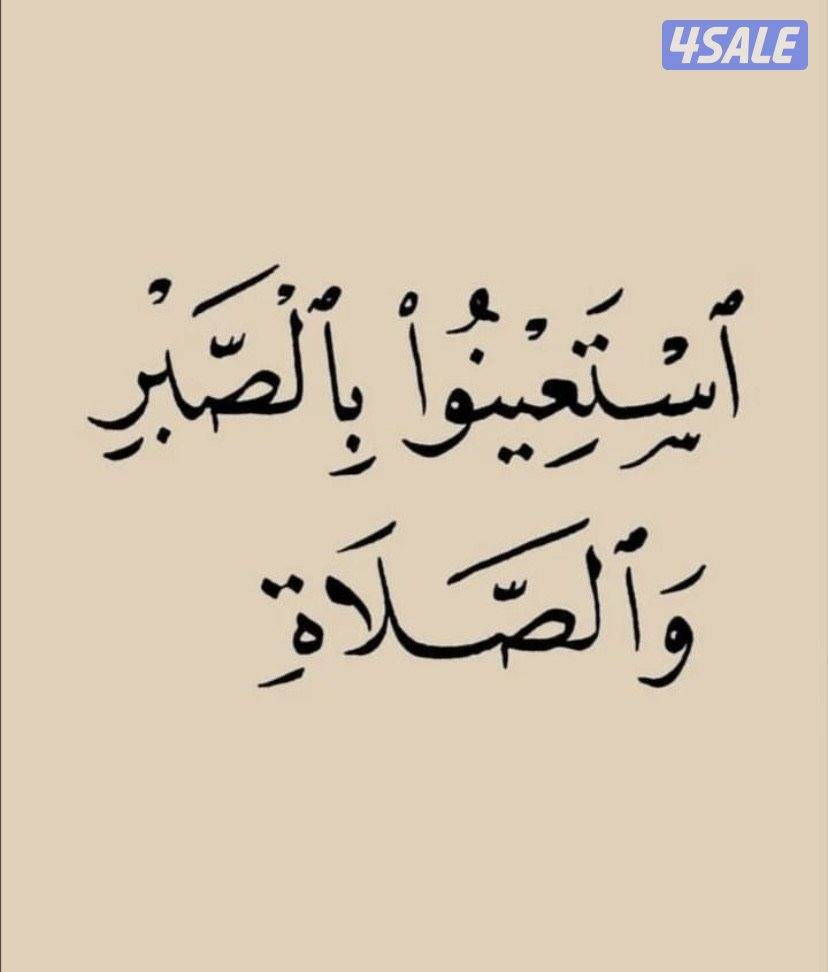 4SALE
ٱسْتَعِيْنُواْ بِٱلْصَّبْرِ
وَٱلصَّلَاةِ